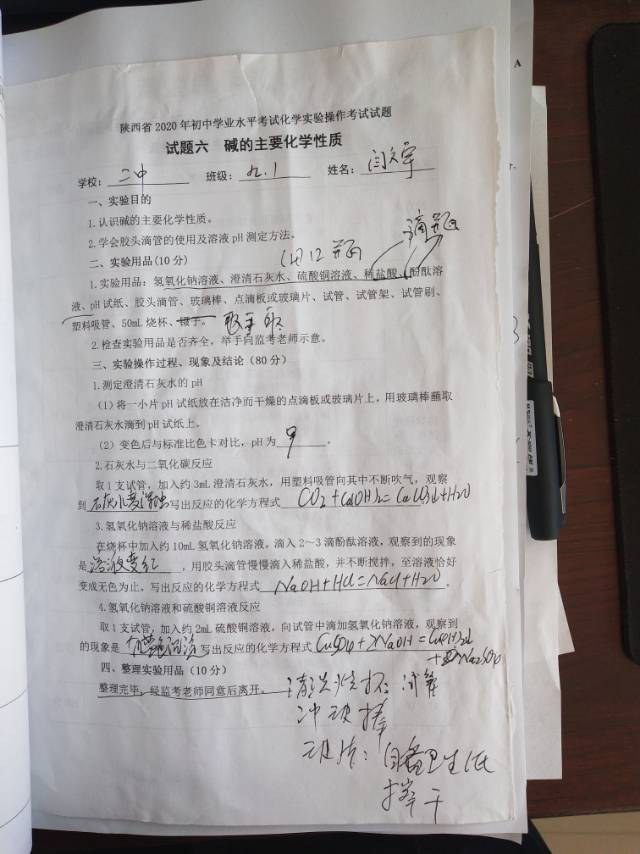 陕西省2020年初中学业水平考试化学实验操作考试试题
试题六 碱的主要化学性质
学校：二中 班级：九.1 姓名：
一、实验目的
1.认识碱的主要化学性质。
2.学会胶头滴管的使用及溶液pH测定方法。
滴瓶
二、实验用品(10分) 细口瓶
1.实验用品：氢氧化钠溶液、澄清石灰水、硫酸铜溶液、稀盐酸、酚酞溶
液、pH试纸、胶头滴管、玻璃棒、点滴板或玻璃片、试管、试管架、试管刷、
塑料吸管、50mL烧杯、镊子。
2.检查实验用品是否齐全，举手向监考老师示意。
三、实验操作过程、现象及结论（80分）
1.测定澄清石灰水的pH
（1）将一小片pH试纸放在洁净而干燥的点滴板或玻璃片上，用玻璃棒蘸取
澄清石灰水滴到pH试纸上。
（2）变色后与标准比色卡对比，pH为 9 。
2.石灰水与二氧化碳反应
取1支试管，加入约3mL澄清石灰水，用塑料吸管向其中不断吹气，观察
到石灰水变浑浊写出反应的化学方程式 CO2+Ca(OH)2=CaCO3↓+H2O
3.氢氧化钠溶液与稀盐酸反应
在烧杯中加入约10mL氢氧化钠溶液，滴入2～3滴酚酞溶液，观察到的现象
是溶液变红，用胶头滴管慢慢滴入稀盐酸，并不断搅拌，至溶液恰好
变成无色为止，写出反应的化学方程式 NaOH+HCl=NaCl+H2O .
4.氢氧化钠溶液和硫酸铜溶液反应
取1支试管，加入约2mL硫酸铜溶液，向试管中滴加氢氧化钠溶液，观察到
的现象是 写出反应的化学方程式 CuSO4+2NaOH=Cu(OH)2↓
+Na2SO4
四、整理实验用品（10分）
整理完毕，经监考老师同意后离开。 清洗烧杯 试管
玻片：自备卫生纸
擦干
A